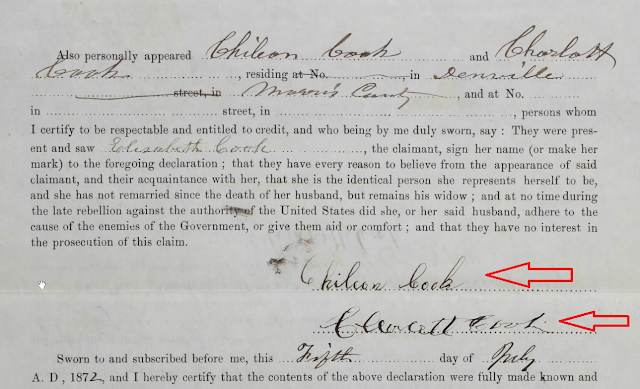 Also personally appeared Chileon Cook and Charlott
Cook, residing at No. , in Denville
street, in Morris County, and at No.
in street, in , persons whom
I certify to be respectable and entitled to credit, and who being by me duly sworn, say : They were pres-
ent and saw Elisabeth Cook, the claimant, sign her name (or make her
mark) to the foregoing declaration ; that they have every reason to believe from the appearance of said
claimant, and their acquaintance with her, that she is the identical person she represents herself to be,
and she has not remarried since the death of her husband, but remains his widow ; and at no time during
the late rebellion against the authority of the United States did she, or her said husband, adhere to the
cause of the enemies of the Government, or give them aid or comfort ; and that they have no interest in
the prosecution of this claim.
Chileon Cook
Cook
Sworn to and subscribed before me, this day of July
A. D, 1872, and I hereby certify that the contents of the above declaration were fully made known and